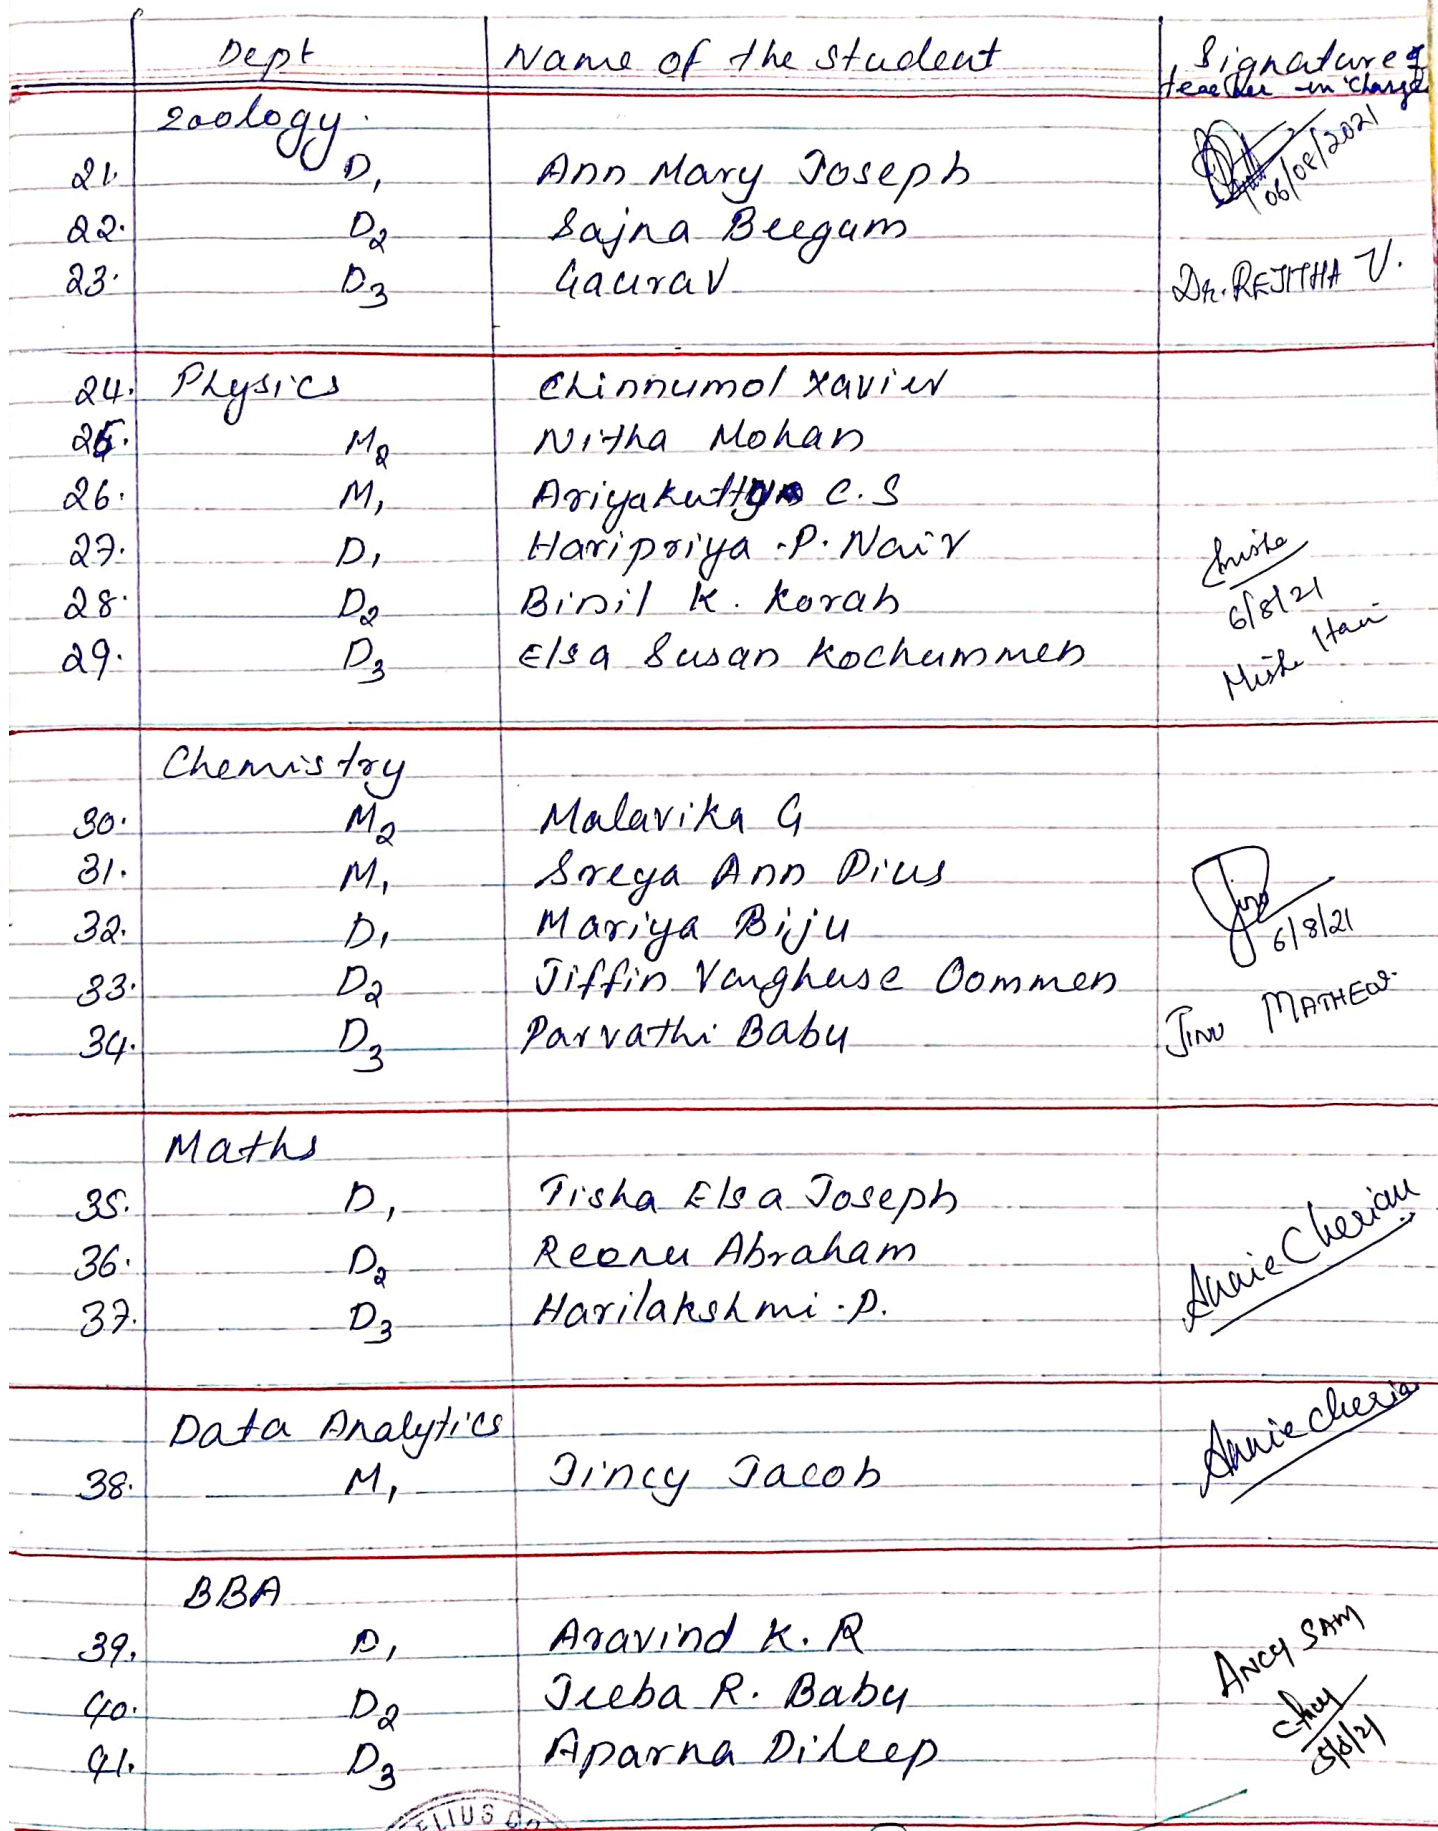 Dept Name of the Student Signature of
teacher in charge
Zoology.
21. D1 Ann Mary Joseph 06/08/2021
22. D2 Sajna Beegam
23. D3 Gaurav Dr. REJITHA V.
24. Physics Chinnumol Xavier
25. M2 Nitha Mohan
26. M1 Ariyakutty C.S
27. D1 Haripriya .P. Nair
28. D2 Binil K. Korah 6/8/21
29. D3 Elsa Susan Kochummen
Chemistry
30. M2 Malavika G
31. M1 Sreya Ann Pius
32. D1 Mariya Biju Jinu 6/8/21
33. D2 Jiffin Varghese Oommen
34. D3 Parvathi Babu JINU MATHEW.
Maths
35. D1 Tisha Elsa Joseph
36. D2 Reenu Abraham Annie Cherian
37. D3 Harilakshmi .P.
Data Analytics Annie Cherian
38. M1 Jincy Jacob
BBA
39. D1 Aravind K. R ANCY SAM
40. D2 Jeeba R. Babu
41. D3 Aparna Dileep